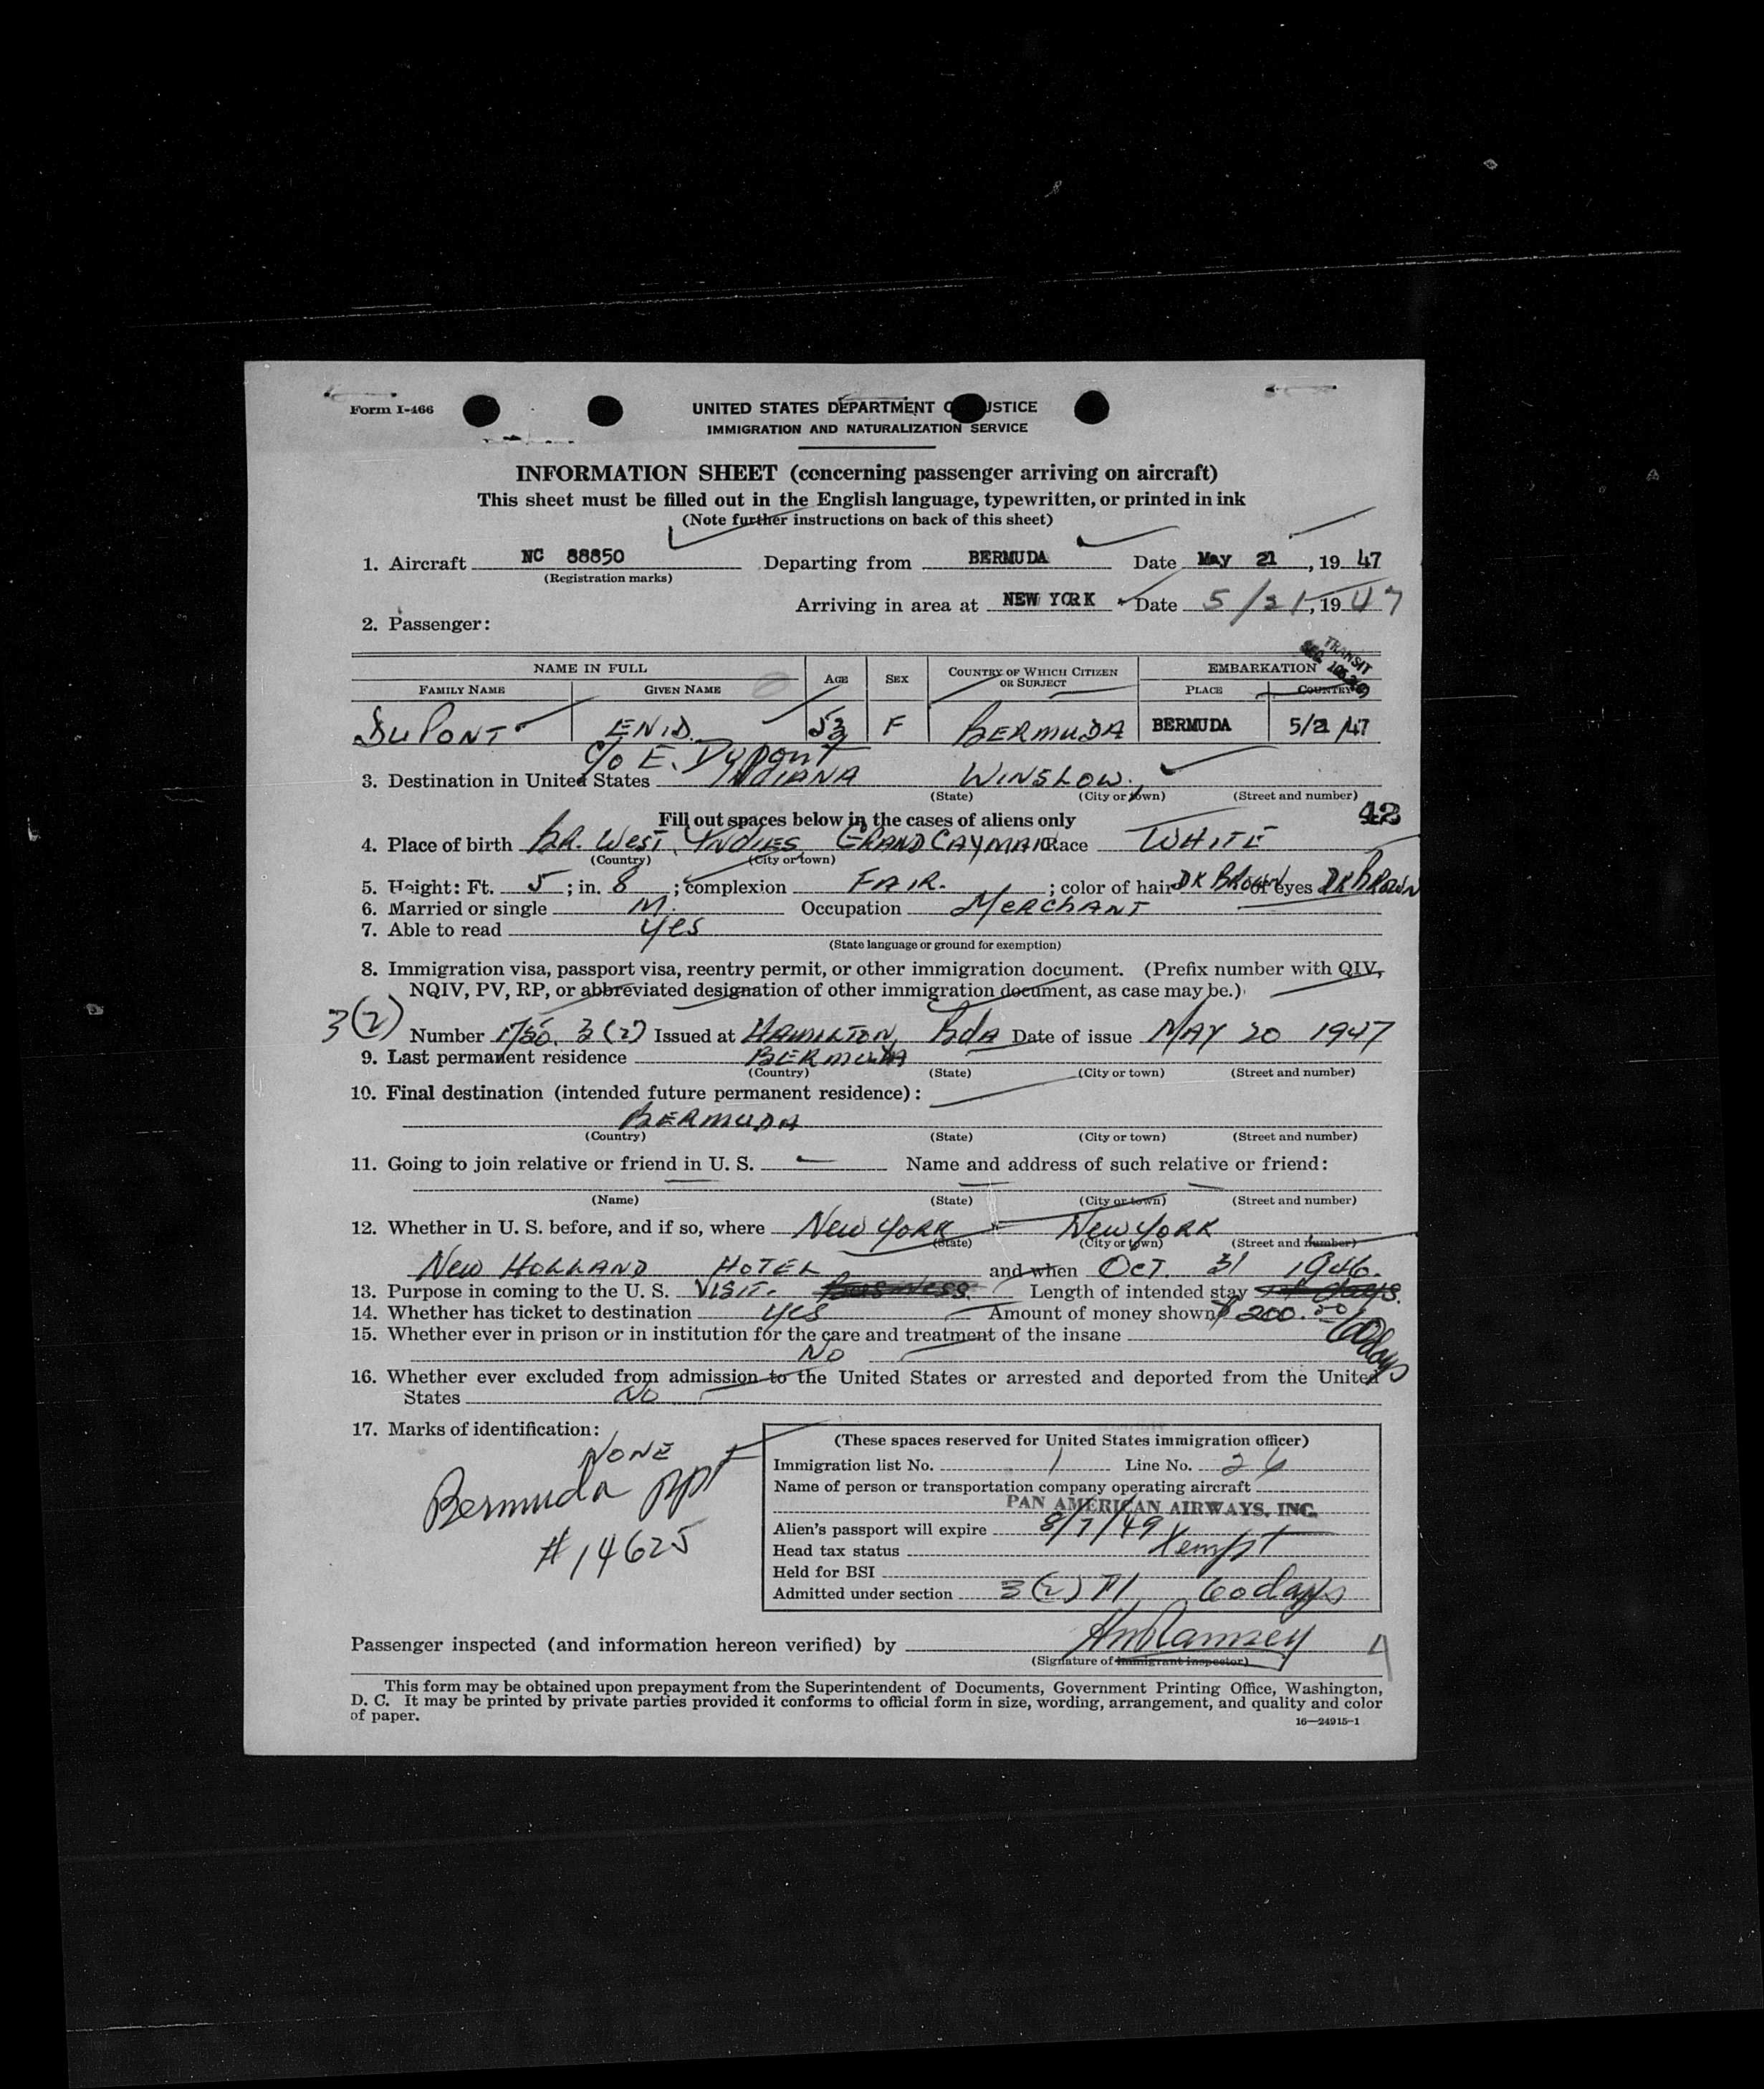 Form I-466
UNITED STATES DEPARTMENT O JUSTICE
IMMIGRATION AND NATURALIZATION SERVICE
INFORMATION SHEET (concerning passenger arriving on aircraft)
This sheet must be filled out in the English language, typewritten, or printed in ink
(Note further instructions on back of this sheet)
1. Aircraft NC 88850 Departing from BERMUDA Date May 21, 1947
(Registration marks)
Arriving in area at NEW YORK Date 5/21, 1947
2. Passenger:
TRANSIT
NAME IN FULL AGE SEX COUNTRY OF WHICH CITIZEN OR SUBJECT EMBARKATION
FAMILY NAME GIVEN NAME PLACE COUNTRY
DuPONT ENID. 53 F BERMUDA BERMUDA 5/2 /47
c/o E. Dupont
3. Destination in United States INDIANA WINSLOW.
(State) (City or town) (Street and number)
42
Fill out spaces below in the cases of aliens only
4. Place of birth BR. West Indies GRAND CAYMAN Race WHITE
(Country) (City or town)
5. Height: Ft. 5; in. 8; complexion FAIR.; color of hair DK BROWN of eyes DK BROWN
6. Married or single M. Occupation MERCHANT
7. Able to read yes
(State language or ground for exemption)
8. Immigration visa, passport visa, reentry permit, or other immigration document. (Prefix number with QIV,
NQIV, PV, RP, or abbreviated designation of other immigration document, as case may be.)
3(2)
Number 3(2) Issued at HAMILTON, Bda Date of issue MAY 20 1947
9. Last permanent residence BERMUDA
(Country) (State) (City or town) (Street and number)
10. Final destination (intended future permanent residence):
BERMUDA
(Country) (State) (City or town) (Street and number)
11. Going to join relative or friend in U. S. — Name and address of such relative or friend:
(Name) (State) (City or town) (Street and number)
12. Whether in U. S. before, and if so, where New York New York
(State) (City or town) (Street and number)
New HOLLAND HOTEL and when OCT. 31 1946.
13. Purpose in coming to the U. S. VISIT. Business. Length of intended stay days.
14. Whether has ticket to destination yes Amount of money shown $200.00
60 days
15. Whether ever in prison or in institution for the care and treatment of the insane
No
16. Whether ever excluded from admission to the United States or arrested and deported from the United
States No
17. Marks of identification:
NONE
Bermuda ppt
#14625
(These spaces reserved for United States immigration officer)
Immigration list No. 1 Line No. 26
Name of person or transportation company operating aircraft
PAN AMERICAN AIRWAYS, INC.
Alien's passport will expire 8/7/49
Head tax status Xempt
Held for BSI
Admitted under section 3(2) 60 days
Passenger inspected (and information hereon verified) by HmRamsey
(Signature of immigrant inspector)
This form may be obtained upon prepayment from the Superintendent of Documents, Government Printing Office, Washington,
D. C. It may be printed by private parties provided it conforms to official form in size, wording, arrangement, and quality and color
of paper.
16—24915-1